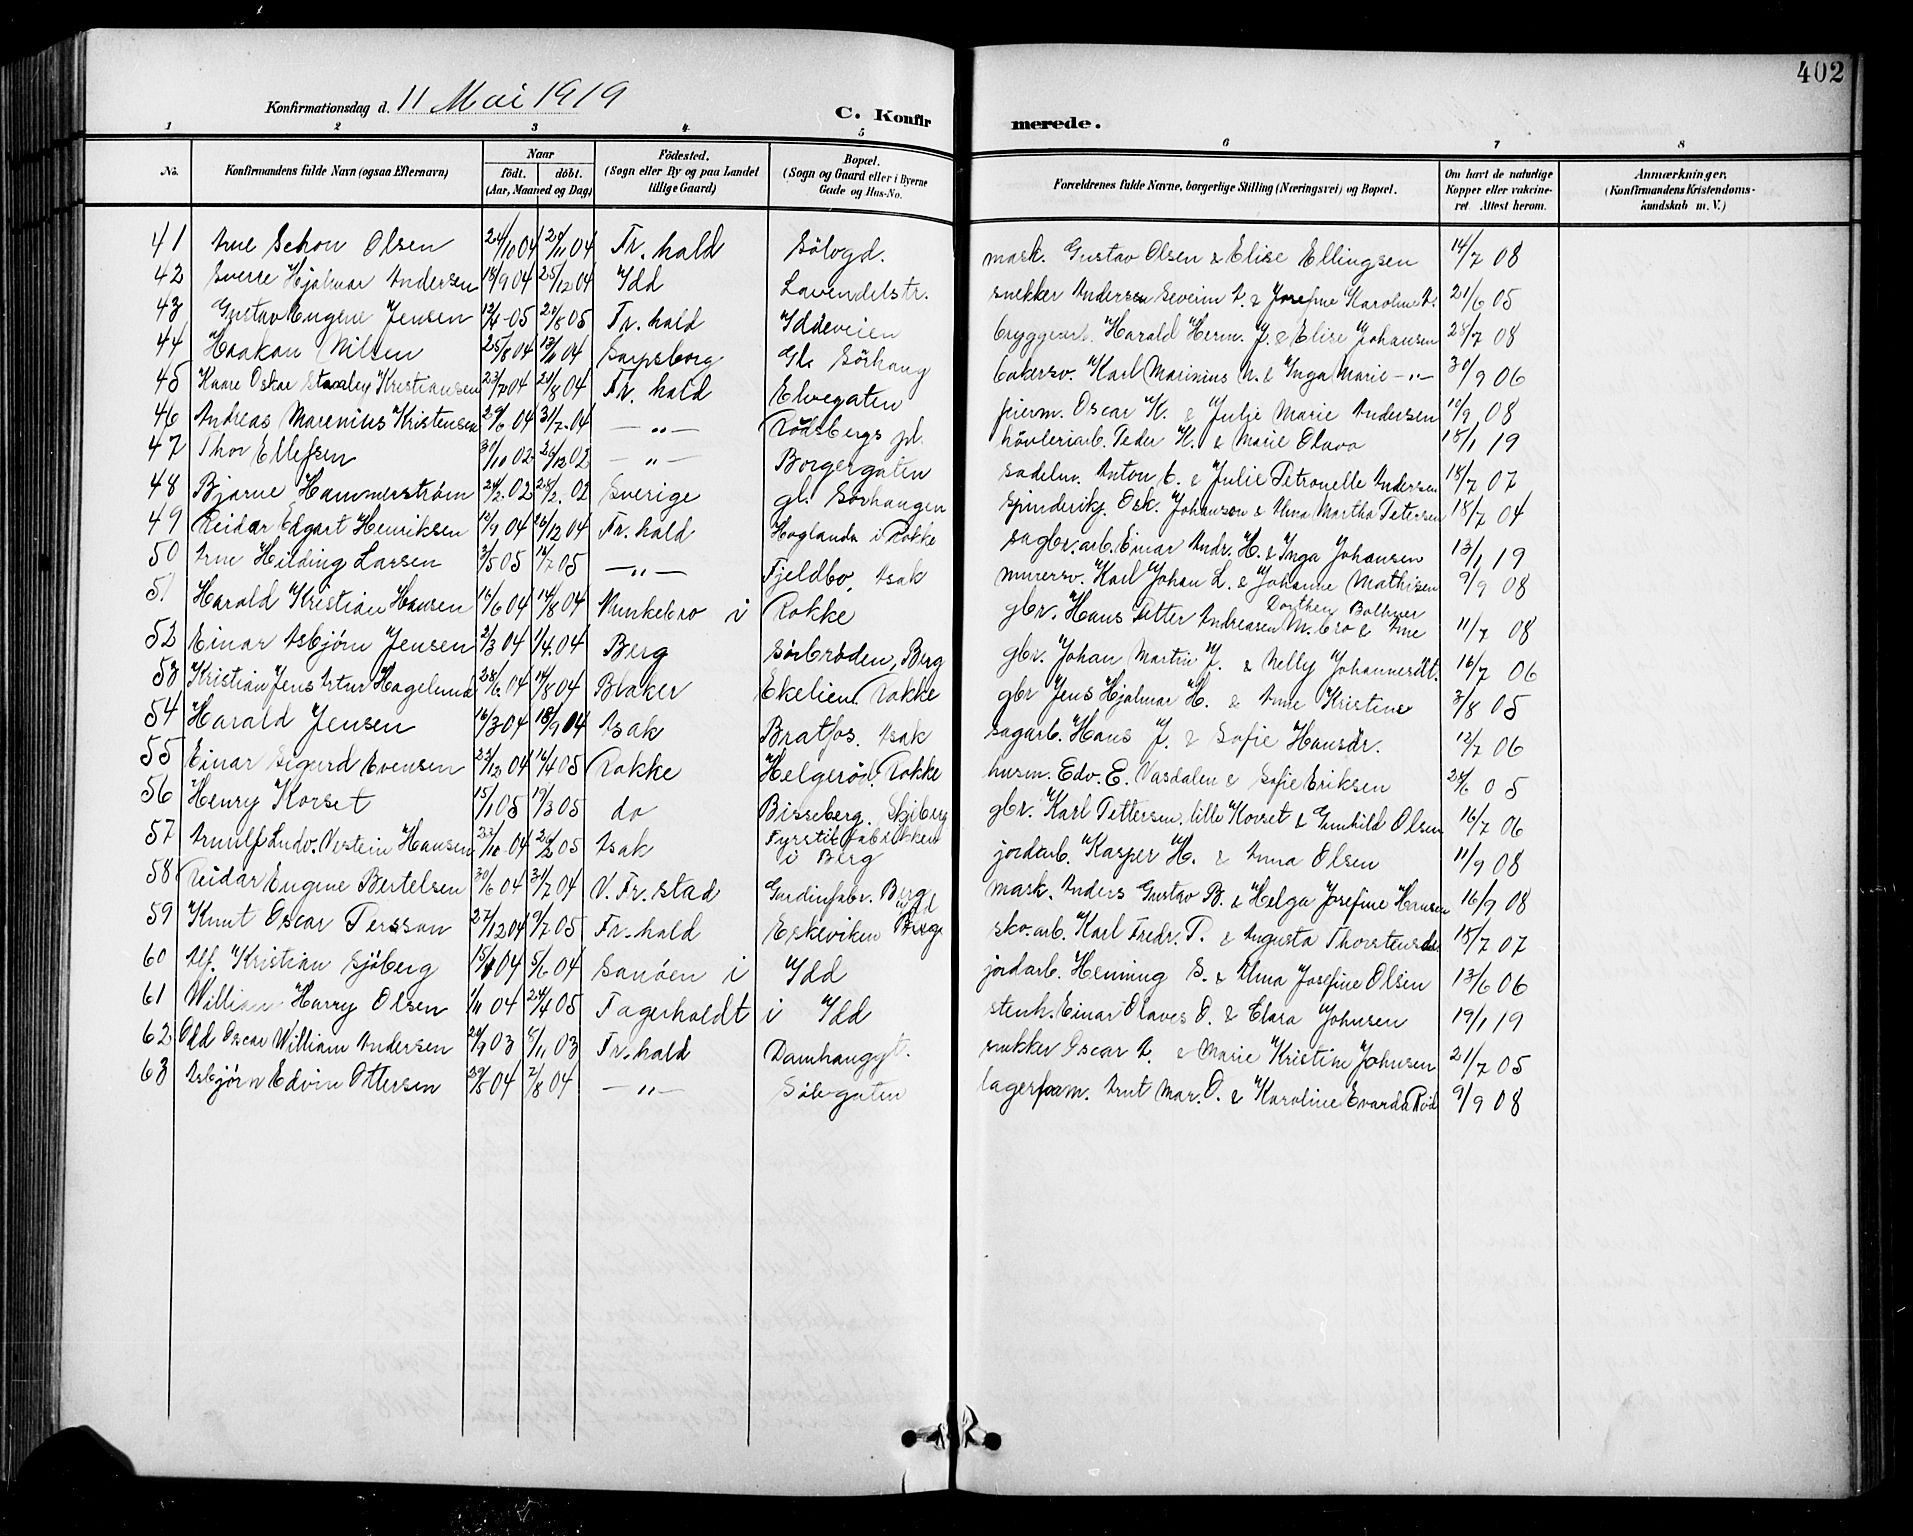 402
Konfirmationsdag d. 11 Mai 1919
C. Konfirmerede.
1 2 3 4 5 6 7 8
No.
Konfirmandens fulde Navn (ogsaa Efternavn)
Naar
født. døbt.
(Aar, Maaned og Dag)
Fødested.
(Sogn eller By og paa Landet tillige Gaard)
Bopæl.
(Sogn og Gaard eller i Byerne Gade og Hus-No.
Forældrenes fulde Navne, borgerlige Stilling (Næringsvei) og Bopæl.
Om havt de naturlige Kopper eller vaccineret Attest herom.
Anmærkninger.
(Konfirmandens Kristendomskundskab m. V.)
41 Arne Schou Olsen 24/10 04 04 Fr. hald Sölvgd. mask. Gustav Olsen & Elise Ellingsen 14/7 08
42 Sverre Hjalmar Andersen 18/9 04 25/12 04 Idd Lavendelstr. snekker Andersen Severin A. & Josefine Karoline A. 21/6 05
43 Gustav Eugene Jensen 12/4 05 20/8 05 Fr. hald Iddeveien bryggearb. Harald Herm. J. & Elise Johansen 28/7 08
44 Haakon Nilsen 25/8 04 13/11 04 Sarpsborg Gl. Sörhaug bakersv. Karl Marinius N. & Inga Marie -"- 30/9 06
45 Kaare Oskar Stanley Kristiansen 23/7 04 21/8 04 Fr. hald Elvegaten feierm. Oscar K. & Julie Marie Andersen 10/9 08
46 Andreas Marenius Kristensen 29/6 04 31/7 04 -"- Rödsbergs pl. hövleriarb. Peder K. & Marie Olava 18/1 19
47 Thor Ellefsen 30/10 02 26/12 02 -"- Borgergaten sadelm. Anton E. & Julie Petronelle Andersen 18/7 07
48 Bjarne Hammerström 24/2 02 02 Sverige gl. Sörhaugen spinderiarb. Osk. Johanson & Alma Martha Petersen 18/7 04
49 Reidar Edgart Henriksen 13/9 04 26/12 04 Fr. hald Hoglanda i Rokke sagbr. arb. Einar Andr. H. & Inga Johansen 13/1 19
50 Arne Hilding Larsen 3/5 05 14/7 05 -"- Fjeldbo, Asak murersv. Karl Johan L. & Johanne Mathisen 9/9 08
51 Harald Kristian Hansen 16/6 04 14/8 04 Munkebro i Rokke gbr. Hans Petter Andreasen M. bro & Ane Dorthea 11/7 08
52 Einar Asbjørn Jensen 2/3 04 1/4 04 Berg Sörbröden, Berg gbr. Johan Martin J. & Nelly Johannesdt. 16/7 06
53 Kristian Jens Artur Hagelund 28/6 04 14/8 04 Braker Ekelien Rokke gbr Jens Hjalmar H. & Ane Kristine 3/8 05
54 Harald Jensen 16/3 04 18/9 04 Asak Bratfos. Asak sagarb. Hans J. & Sofie Hansdr. 12/7 06
55 Einar Sigurd Evensen 23/12 04 16/4 05 Rokke Helgerød. Rokke husm. Edv. E. Vasdalen & Sofie Eriksen 24/6 05
56 Henry Korset 15/1 05 19/3 05 do Bisseberg. Skjeberg gbr. Karl Pettersen. lille Korset & Gunhild Olsen 16/7 06
57 Arnulf Ludv. Verstein Hansen 23/10 04 26/2 05 Asak Fyrstikfabrikken i Berg jordarb. Kasper H. & Anna Olsen 11/9 08
58 Reidar Eugene Bertelsen 30/6 04 31/7 04 V. Fr. stad Gardinfabr. Berg mask. Anders Gustav B. & Helga Josefine Hansen 16/9 08
59 Knut Oscar Persson 27/12 04 9/7 05 Fr. hald Eskeviken Berg sko. arb. Karl Fredr. P. & Augusta Thorstensd 18/7 07
60 Alf Kristian Sjöberg 15/1 04 5/6 04 Sanöen i Idd jordarb. Henning S. & Alma Josefine Olsen 13/6 06
61 William Harry Olsen 1/11 04 24/4 05 Fagerholdt i Idd stenh. Einar Olaves O. & Clara Johnsen 19/1 19
62 Odd Oscar William Andersen 24/9 03 8/11 03 Fr. hald Damhauggt. snekker Oscar A. & Marie Kristine Johnsen 21/7 05
63 Asbjørn Edvin Ottersen 29/5 04 2/8 04 -"- Sölvgaten lagerform. Arnt Mar. O. & Karoline Evarda Röd 9/9 08